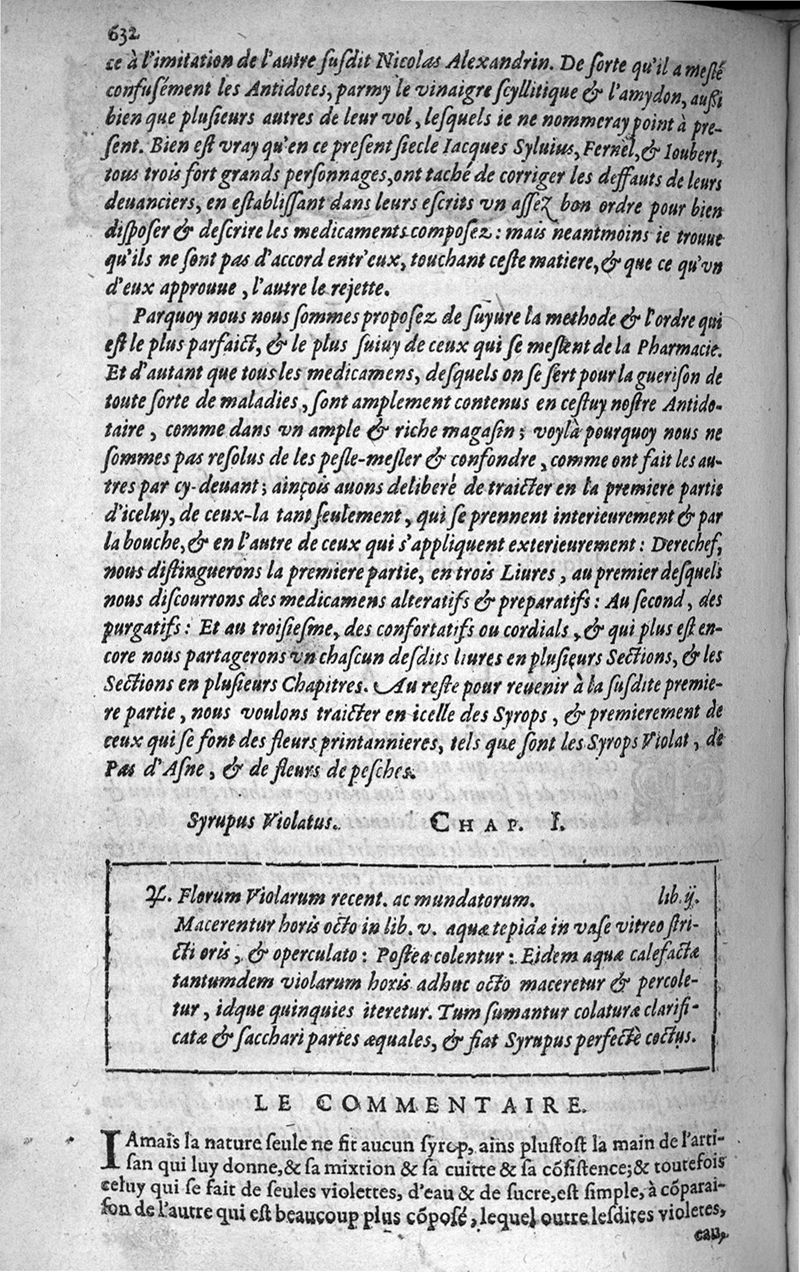 632
ce à l'imitation de l'autre ſuſdit Nicolas Alexandrin. De ſorte qu'il a meſlé
confuſément les Antidotes, parmy le vinaigre ſcyllitique & l'amydon, außi
bien que pluſieurs autres de leur vol, leſquels ie ne nommeray point à pre-
ſent. Bien eſt vray qu'en ce preſent ſiecle Iacques Syluius, Fernel, & Ioubert,
tous trois fort grands perſonnages, ont taché de corriger les deffauts de leurs
deuanciers, en eſtabliſſant dans leurs eſcrits vn aſſez bon ordre pour bien
diſpoſer & deſcrire les medicaments compoſez: mais neantmoins ie trouue
qu'ils ne ſont pas d'accord entr'eux, touchant ceſte matiere, & que ce qu'vn
d'eux approuue, l'autre le rejette.
Parquoy nous nous ſommes propoſez de ſuyure la methode & l'ordre qui
eſt le plus parfaict, & le plus ſuiuy de ceux qui ſe meſlent de la Pharmacie.
Et d'autant que tous les medicamens, deſquels on ſe ſert pour la gueriſon de
toute ſorte de maladies, ſont amplement contenus en ceſtuy noſtre Antido-
taire, comme dans vn ample & riche magaſin; voylà pourquoy nous ne
ſommes pas reſolus de les peſle-meſler & confondre, comme ont fait les au-
tres par cy-deuant; ainçois auons deliberé de traicter en la premiere partie
d'iceluy, de ceux-la tant ſeulement, qui ſe prennent interieurement & par
la bouche, & en l'autre de ceux qui s'appliquent exterieurement: Derechef,
nous diſtinguerons la premiere partie, en trois Liures, au premier deſquels
nous diſcourrons des medicamens alteratifs & preparatifs: Au ſecond, des
purgatifs: Et au troiſieſme, des confortatifs ou cordials, & qui plus eſt en-
core nous partagerons vn chaſcun deſdits liures en pluſieurs Sections, & les
Sections en pluſieurs Chapitres. Au reſte pour reuenir à la ſuſdite premie-
re partie, nous voulons traicter en icelle des Syrops, & premierement de
ceux qui ſe font des fleurs printannieres, tels que ſont les Syrops Violat, de
Pas d'Aſne, & de fleurs de peſches.
Syrupus Violatus. CHAP. I.
♃. Florum Violarum recent. ac mundatorum. lib. ij.
Macerentur horis octo in lib. v. aquæ tepidæ in vaſe vitreo ſtri-
cti oris, & operculato: Poſtea colentur: Eidem aquæ calefactæ
tantumdem violarum horis adhuc octo maceretur & percole-
tur, idque quinquies iteretur. Tum ſumantur colaturæ clarifi-
catæ & ſacchari partes æquales, & fiat Syrupus perfectè coctus.
LE COMMENTAIRE.
IAmais la nature ſeule ne fit aucun ſyrop, ains pluſtoſt la main de l'arti-
ſan qui luy donne, & ſa mixtion & ſa cuitte & ſa cõſiſtence; & toutefois
celuy qui ſe fait de ſeules violettes, d'eau & de ſucre, eſt ſimple, à cõparai-
ſon de l'autre qui eſt beaucoup plus cõpoſé, lequel outre leſdites violetes,
eau,